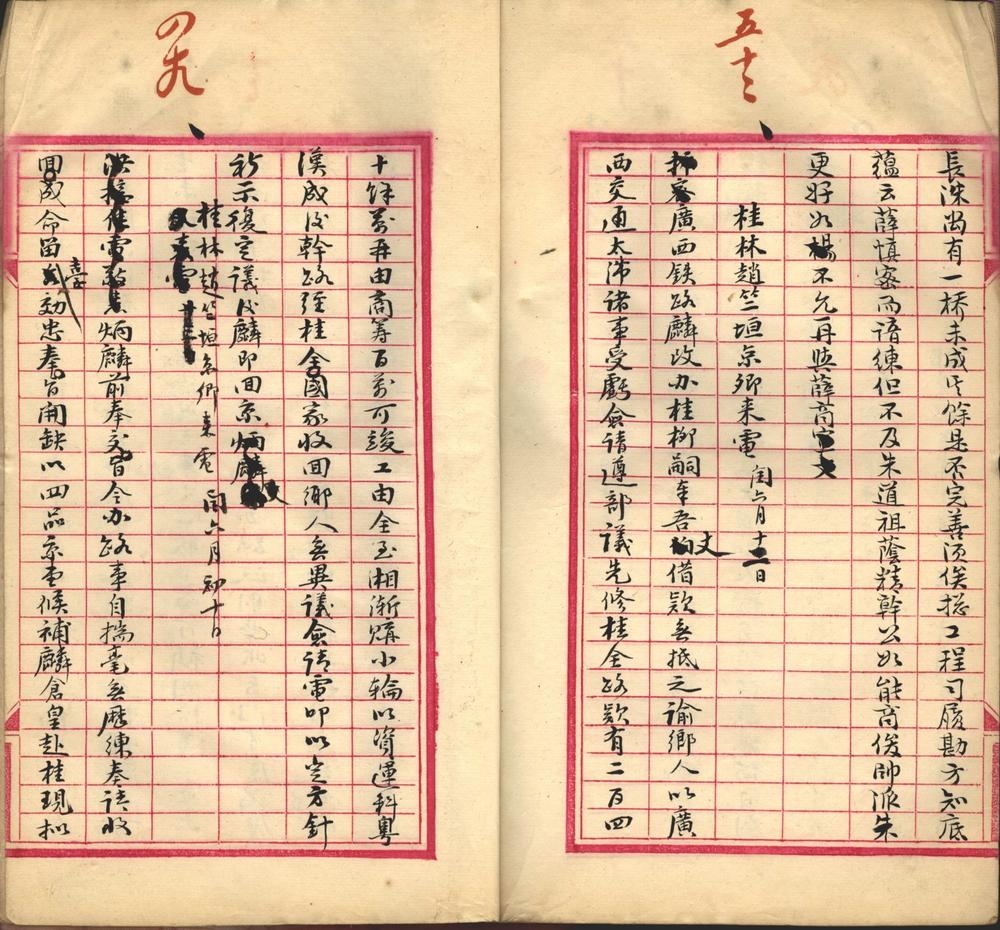 五十三
長洙尚有一橋未成其餘是否完善須俟總工程司履勘方知底
蘊云薛慎密而諳練但不及朱道祖蔭精幹公如能商俊帥派朱
更好如楊不允再與薛商
桂林趙竺垣京卿來電 閏六月十二日
廣西鐵路麟改办桂柳嗣奉吾丈借欵無抵之諭鄉人以廣
西交通太滯諸事受虧僉請遵部議先修桂全路欵有二百四
四九
十餘萬再由商籌百萬可竣工由全至湘漸購小輪以資運料粵
漢成後幹路經桂全國家收回鄉人無異議僉請電叩以定方針
祈示復定議後麟即回京炳麟
桂林趙竺垣京卿來電 閏六月初十日
炳麟前奉交旨令办路事自揣毫無歷練奏請收
回成命留臺効忠奉旨開缺以四品京堂候補麟倉皇赴桂現擬